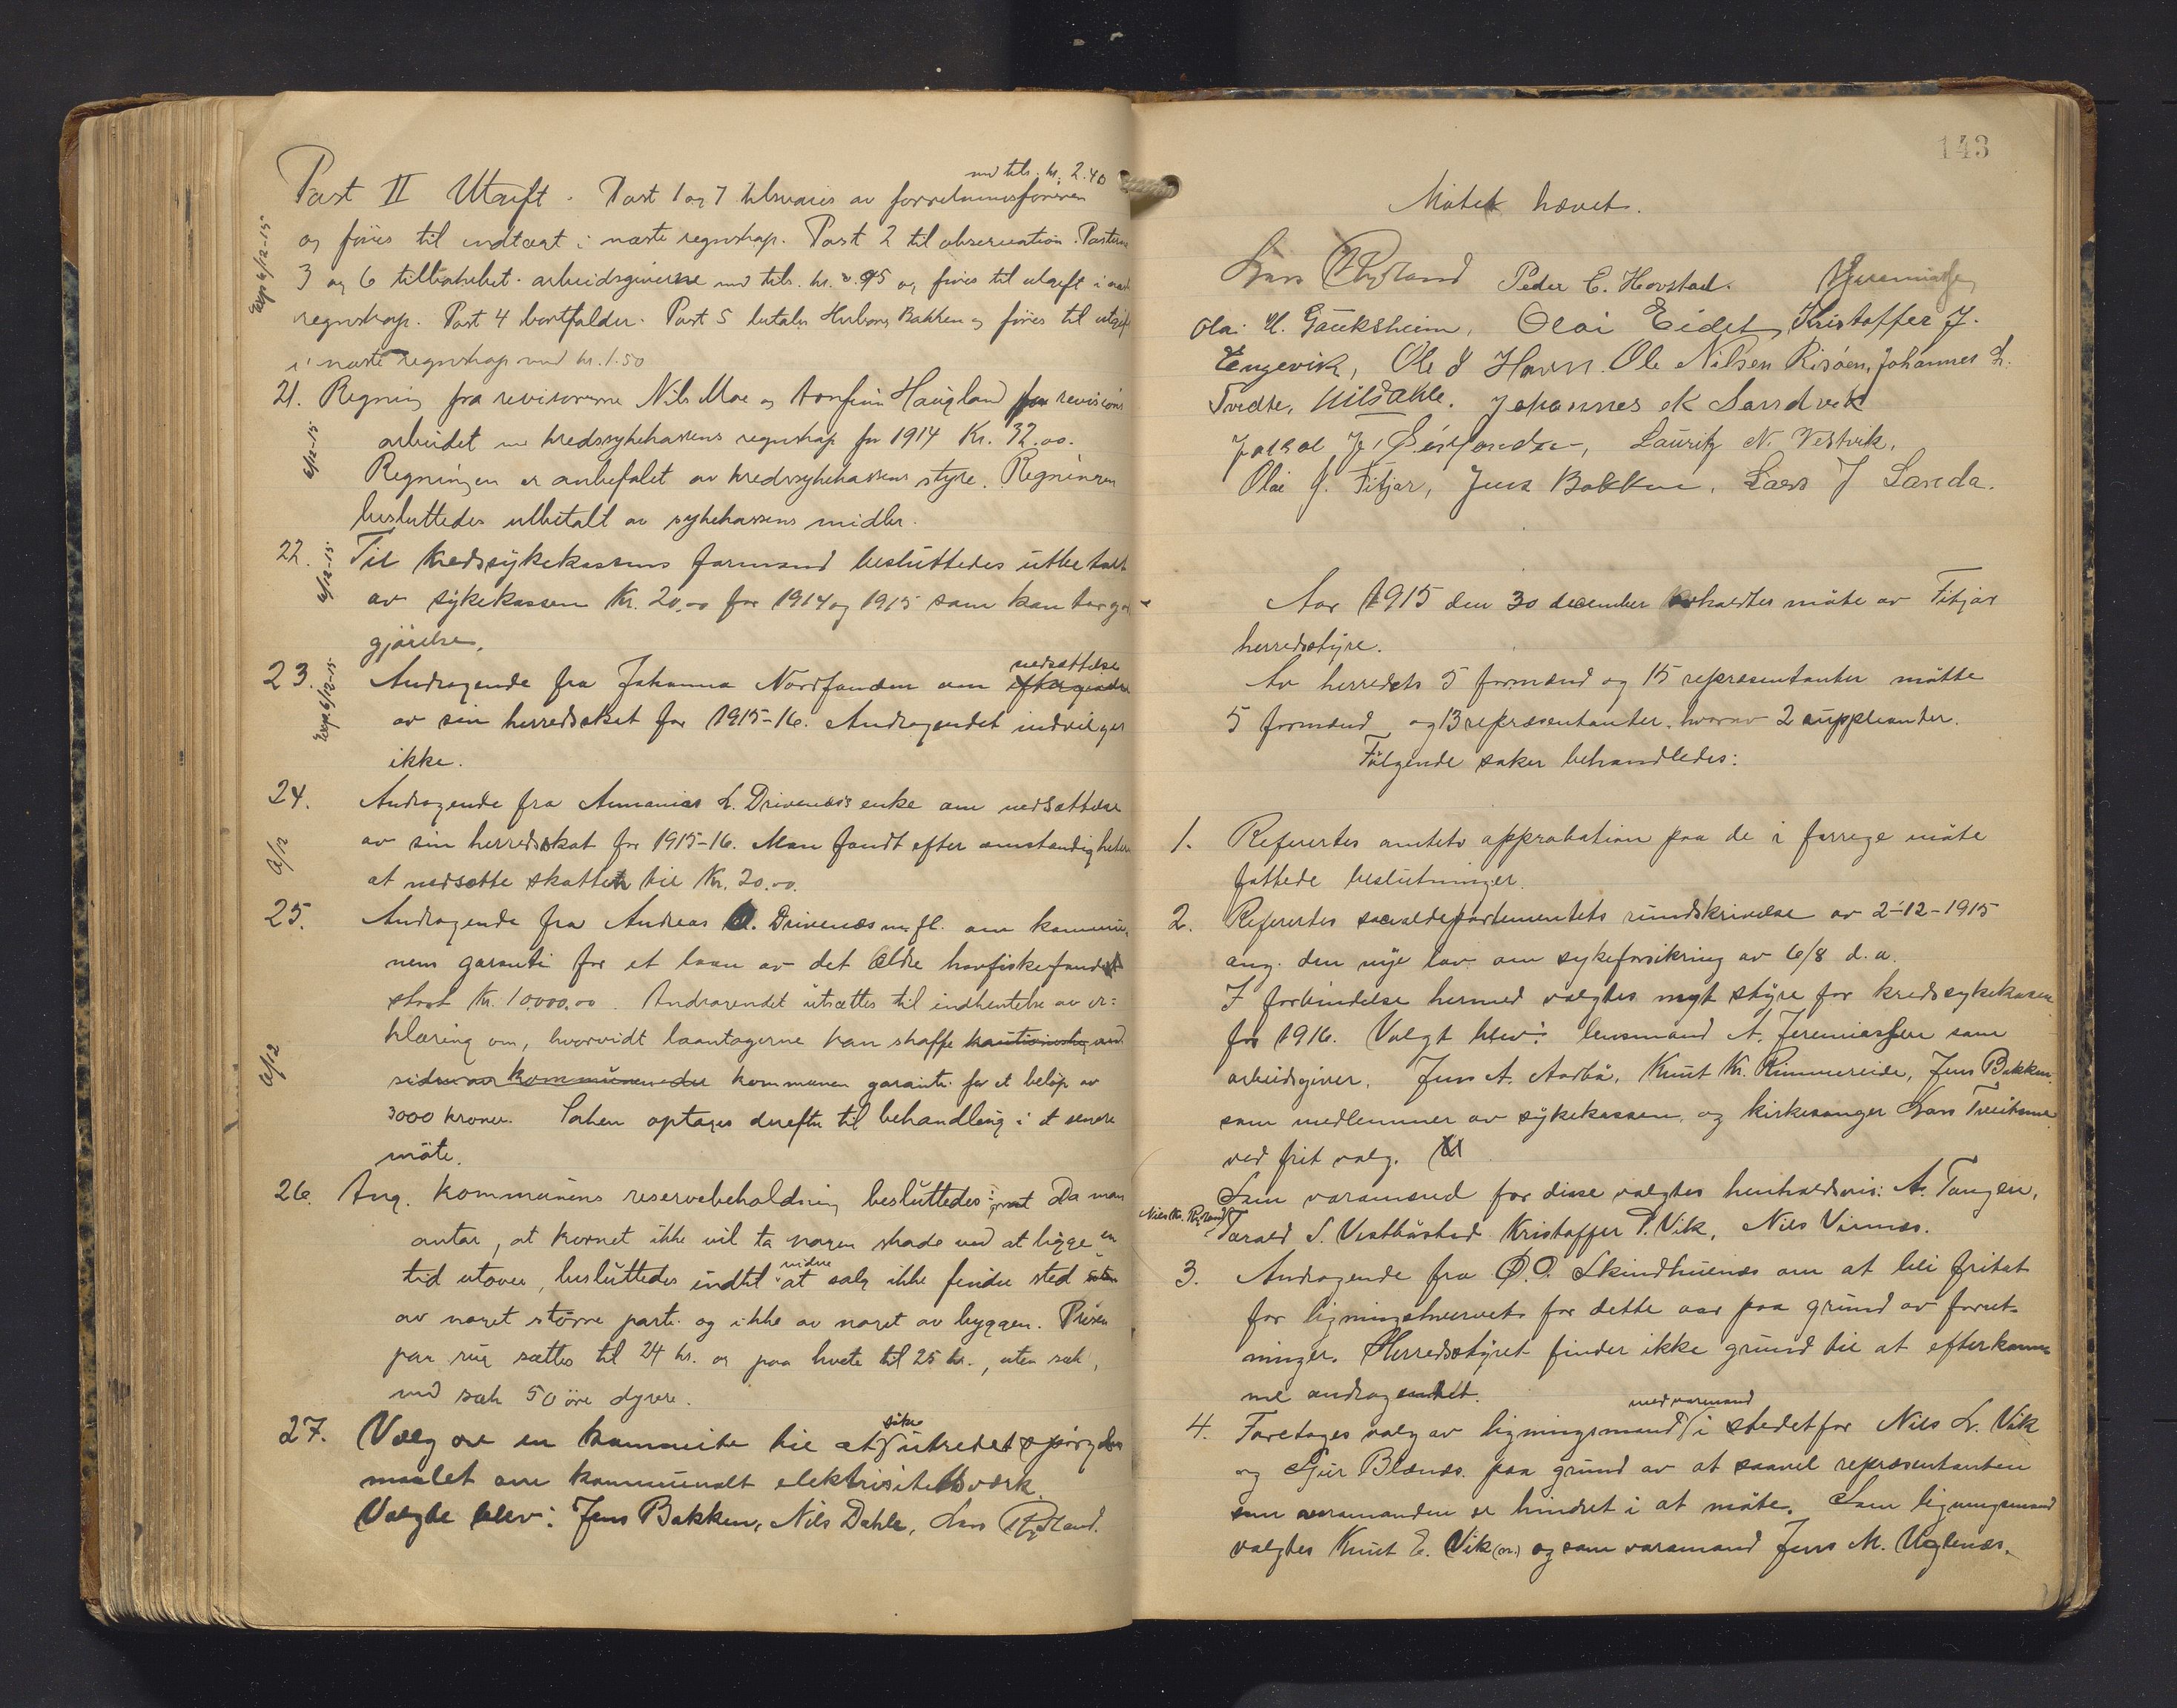 Post II Utgift. Post 1 og 7 tilsvares av forretningsföreren
med tils. kr. 2.40
og föres til indtægt i næste regnskap. Post 2 til observation. Posterne
3 og 6 tilbakebet. arbeidsgiverne med tils. kr. 0.95 og föres til utgift i
Exp 6/12-15
regnskap. Post 4 bortfalder. Post 5 betaler Bakken og föres til utgift
i næste regnskap med kr. 1.50
21. Regning fra revisorerne Nils Moe og Tonfinn Haugland for revisions
arbeidet av kredssykekassens regnskap for 1914 Kr. 32.00.
6/12-15
Regningen er anbefalet av kredssykekassens styre. Regningen
besluttedes utbetalt av sykekassens midler.
22. Til kredssykekassens formand besluttedes utbetalt
6/12-15
av sykekassen Kr. 20,00 for 1914 og 1915 som kontorgod
gjörelse.
23. Andragende fra Johanna Nordfonden om eftergivelse
nedsættelse
Exp. 6/12-15
av sin herredsskat for 1915-16. Andragendet indvilges
ikke.
24. Andragende fra Annanias L. Drivenæs's enke om nedsættelse
av sin herredsskat for 1915-16. Man fandt efter omstændigheten
6/12
at nedsætte skatten til Kr. 20.00.
25. Andragende fra Andreas O. Drivenæs m. fl. om kommu-
nens garanti for et laan av det Ældre havfiskefond
stort Kr. 10000,00. Andragendet utsættes til indhentelse av er=
klæring om, hvorvidt laantagerne kan skaffe kautionister
6/12
kommunen kommunen garanti for et belöp av
3000 kroner. Saken optages derefter til behandling i et senere
möte.
26. Ang. kommunens reservebeholdning besluttedes: Da man
antar, at kornet ikke vil ta nogen skade ved at ligge en
tid utover, besluttedes indtil videre at salg ikke finder sted uten
av noget större parti og ikke av noget av byggen. Prisen
paa rug sættes til 24 kr. og paa hvete til 25 kr., uten sæk,
med sæk 50 öre dyrere.
27. Valg av en kommite til at söke utredet spörgs
maalet om kommunalt elektrisitetsværk.
Valgte blev: Jens Bakken, Nils Dahle, Lars Rydland.
143
Mötet hævet.
Lars Rydland Peder C. Hovstad. Jeremiassen
Ola. H. Gauksheim, Olai Eidet, Kristoffer J.
Engevik, Ole J Havn. Ole Nilsen Risöen, Johannes L.
Tvedte, Nils Dahle. Johannes K Sandvik
Jakob J. Sörfonden, Lauritz N. Vestvik,
Olai J. Fitjar, Jens Bakken, Lars J Landa.
Aar 1915 den 30 december avholdtes möte av Fitjar
herredsstyre.
Av herredets 5 formænd og 15 repræsentanter mötte
5 formænd og 13 repræsentanter, hvorav 2 suppleanter.
Fölgende saker behandledes:
1. Refertes amtets approbation paa de i forrige möte
fattede beslutninger.
2. Refertes socialdepartementets rundskrivelse av 2-12-1915
ang. den nye lov om sykeforsikring av 6/8 d. a.
I forbindelse hermed valgtes nyt styre for kredssykekassen
for 1916. Valgt blev: lensmand A. Jeremiassen som
arbeidsgiver, Jens A. Aarbö, Knut Kr. Rimmereide, Jens Bakken
som medlemmer av sykekassen, og kirkesanger Lars
ved frit valg.
Som varamænd for disse valgtes henholdsvis: A. Tangen,
Nils Kr. Rydland
Tarald S. Vestböstad Kristoffer P. Vik, Nils Vinnes.
3. Andragende fra O. O. Skindhuenæs om at bli fritat
for ligningshvervet for dette aar paa grund av forret-
ninger. Herredsstyret finder ikke grund til at efterkom-
me andragendet.
4. Foretages valg av ligningsmand i stedetfor Nils L. Vik
med varamand
og Gjür Blænæs paa grund av at saavel repræsentanten
som varamanden er hindret i at möte. Som ligningsmand
valgtes Knut E. Vik og som varamand Jens M. Uglenæs.